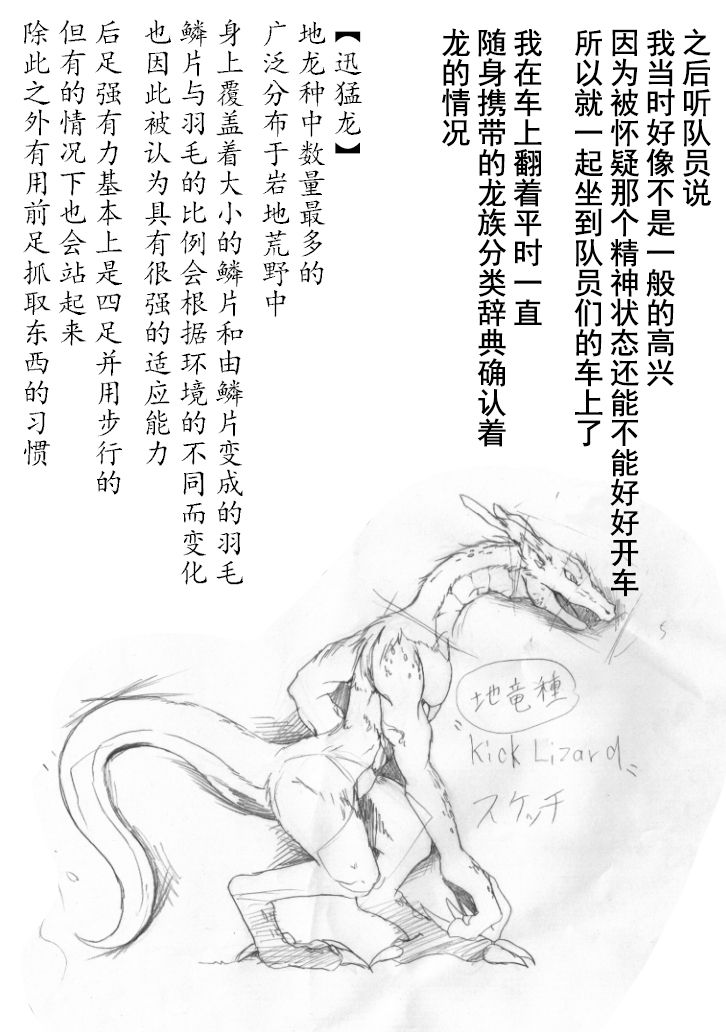 之后听队员说
我当时好像不是一般的高兴
因为被怀疑那个精神状态还能不能好好开车
所以就一起坐到队员们的车上了
我在车上翻着平时一直
随身携带的龙族分类辞典确认着
龙的情况
【迅猛龙】
地龙种中数量最多的
广泛分布于岩地荒野中
身上覆盖着大小的鳞片和由鳞片变成的羽毛
鳞片与羽毛的比例会根据环境的不同而变化
也因此被认为具有很强的适应能力
后足强有力基本上是四足并用步行的
但有的情况下也会站起来
除此之外有用前足抓取东西的习惯
地竜種
"Kick Lizard"
スケッチ